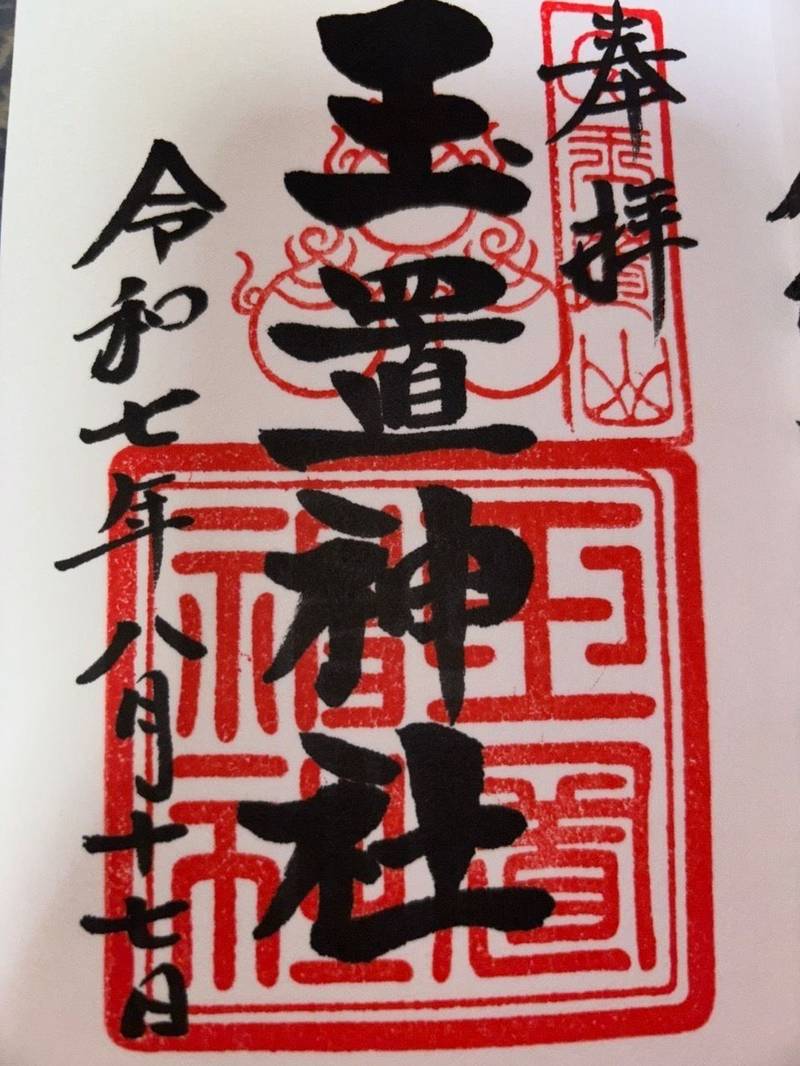 奉拝
玉置山
玉置神社
玉置神社
令和七年八月十七日